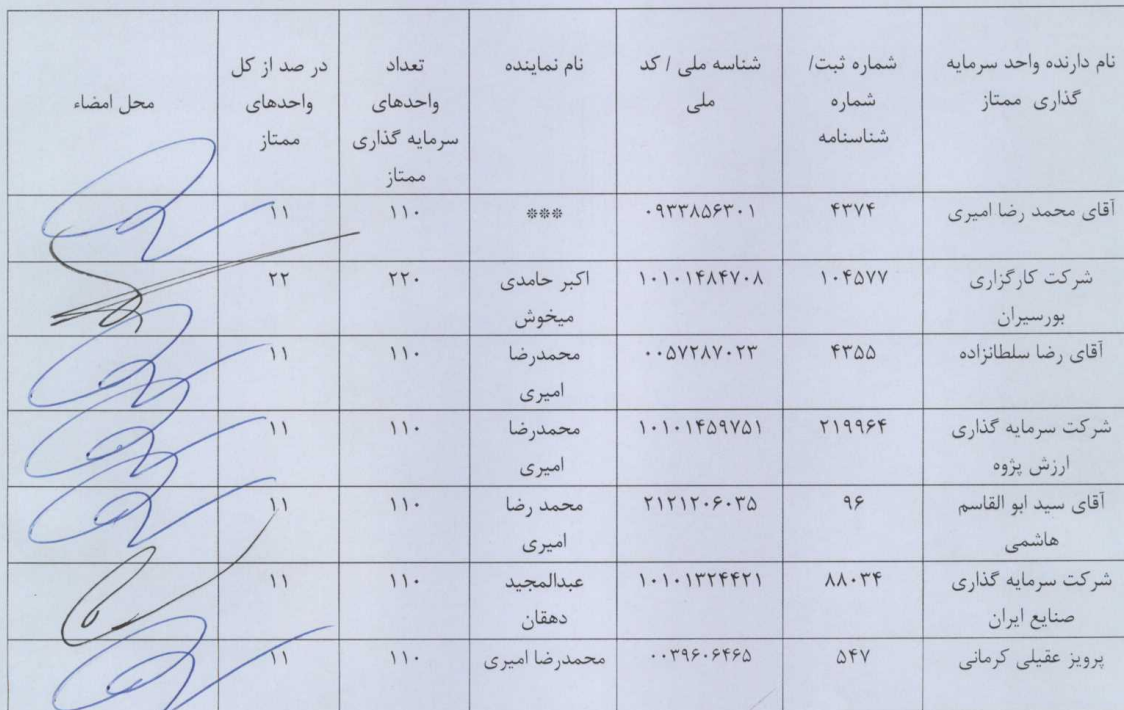 نام دارنده واحد سرمایه گذاری ممتاز
شماره ثبت/ شماره شناسنامه
شناسه ملی / کد ملی
نام نماینده
تعداد واحدهای سرمایه گذاری ممتاز
در صد از کل واحدهای ممتاز
محل امضاء
آقای محمد رضا امیری ۴۳۷۴ ۰۹۳۳۸۵۶۳۰۱ *** ۱۱۰ ۱۱
شرکت کارگزاری بورسیران ۱۰۴۵۷۷ ۱۰۱۰۱۴۸۴۷۰۸ اکبر حامدی میخوش ۲۲۰ ۲۲
آقای رضا سلطانزاده ۴۳۵۵ ۰۰۵۷۲۸۷۰۲۳ محمدرضا امیری ۱۱۰ ۱۱
شرکت سرمایه گذاری ارزش پژوه ۲۱۹۹۶۴ ۱۰۱۰۱۴۵۹۷۵۱ محمدرضا امیری ۱۱۰ ۱۱
آقای سید ابو القاسم هاشمی ۹۶ ۲۱۲۱۲۰۶۰۳۵ محمد رضا امیری ۱۱۰ ۱۱
شرکت سرمایه گذاری صنایع ایران ۸۸۰۳۴ ۱۰۱۰۱۳۲۴۴۲۱ عبدالمجید دهقان ۱۱۰ ۱۱
پرویز عقیلی کرمانی ۵۴۷ ۰۰۳۹۶۰۶۴۶۵ محمدرضا امیری ۱۱۰ ۱۱